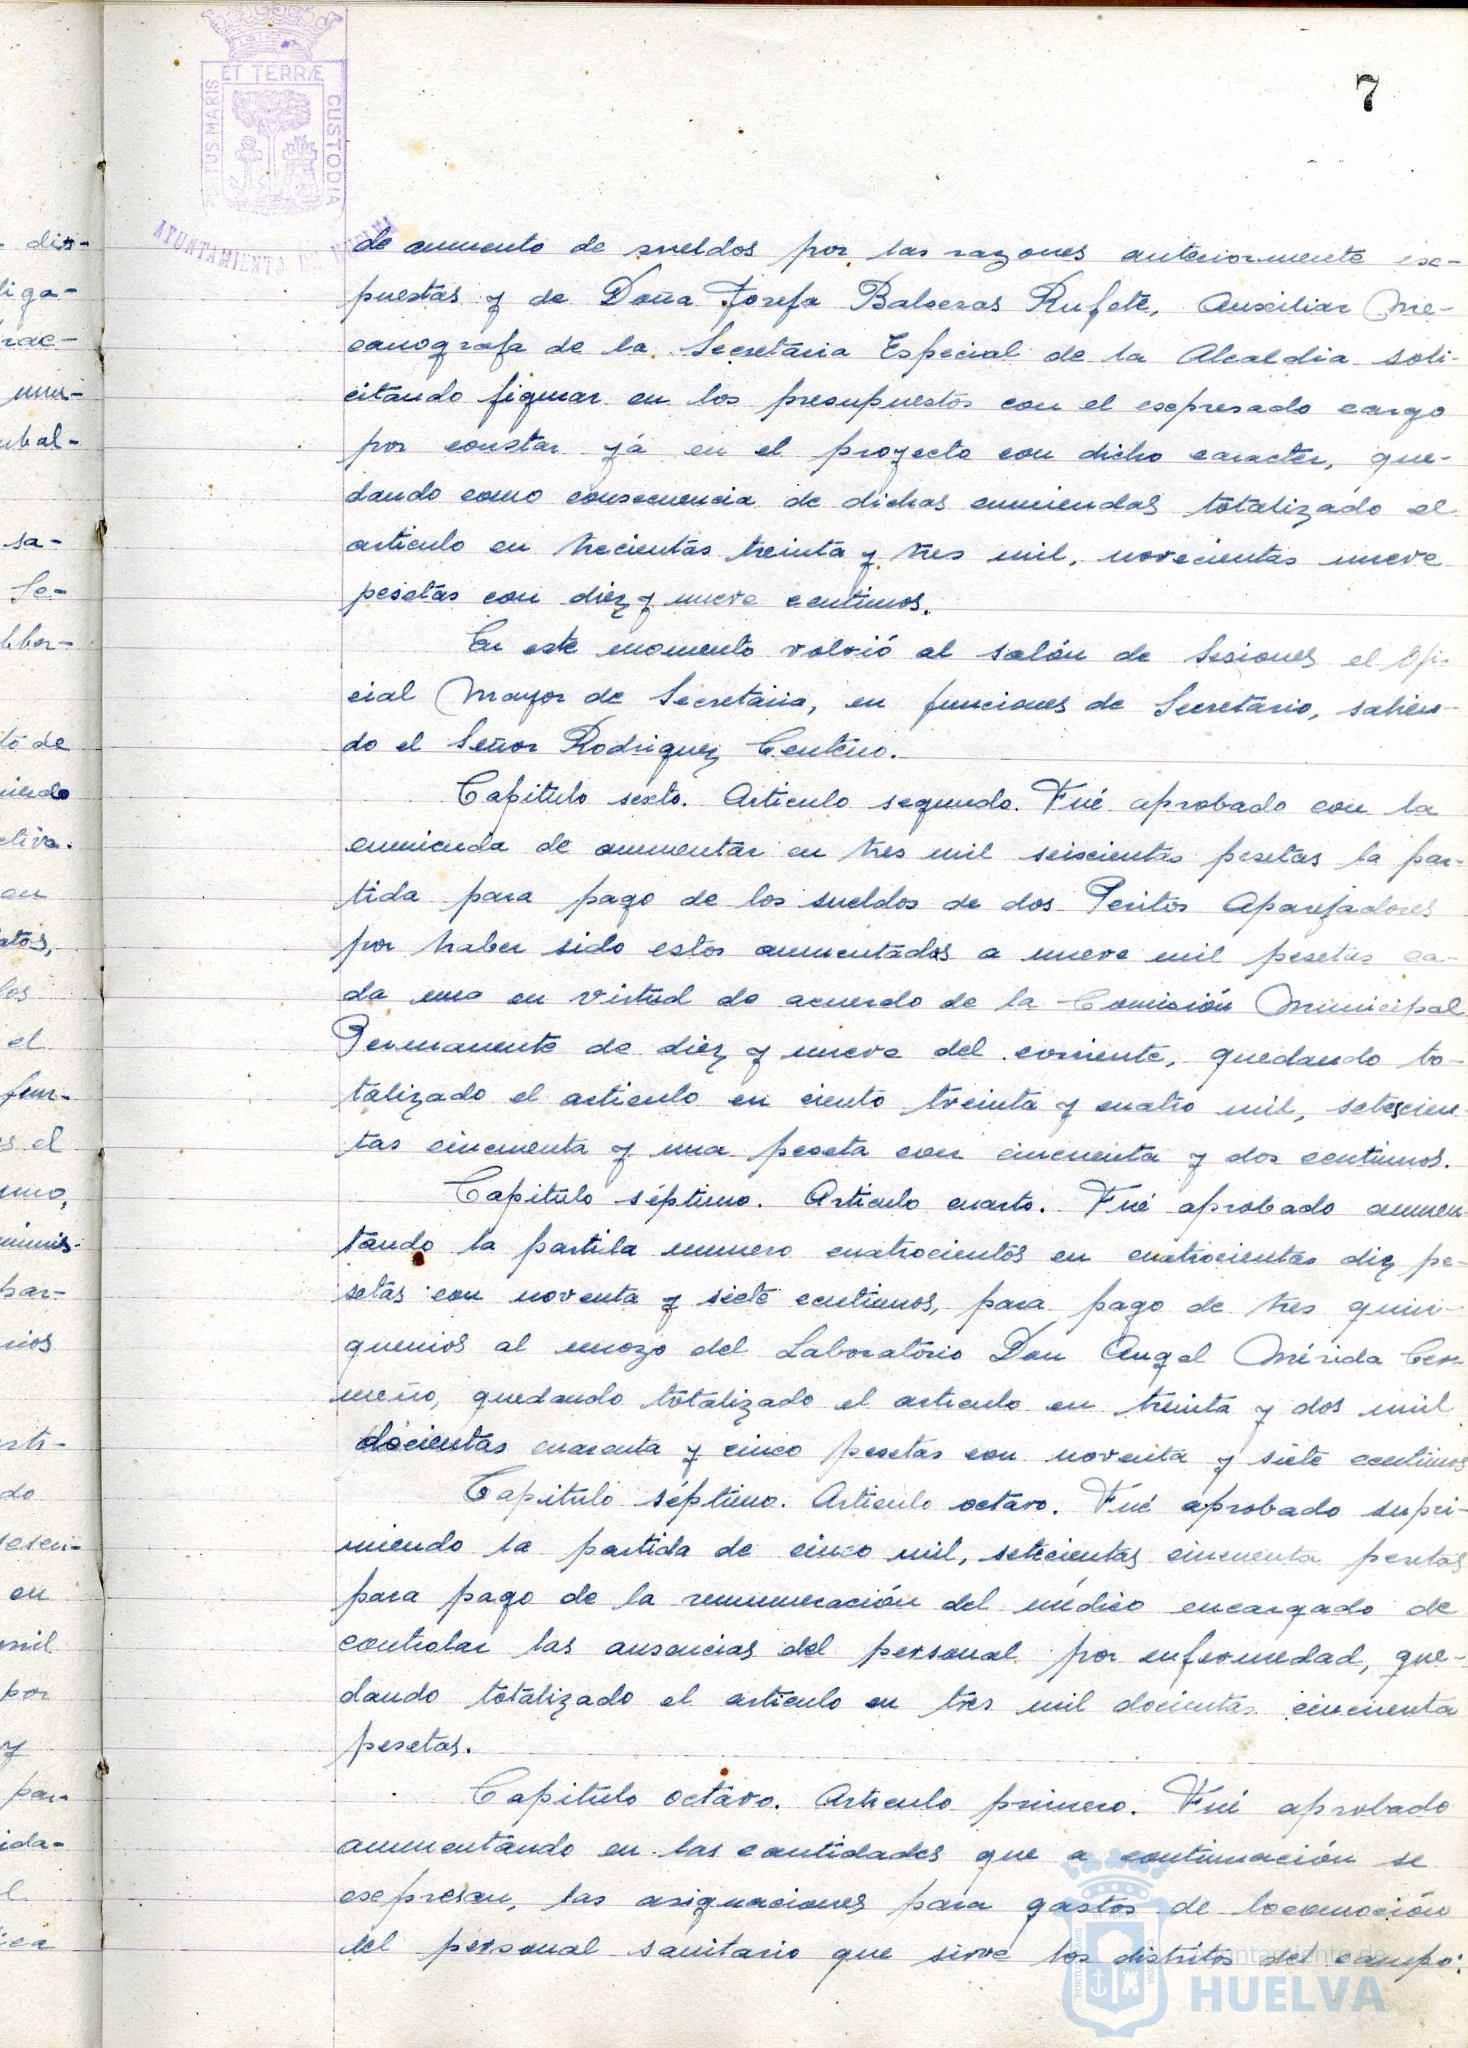 7
ET TERRÆ
CUSTODIA
TUS MARIS
AYUNTAMIENTO DE HUELVA
de aumento de sueldos por las razones anteriormente ex-
puestas y de Doña Josefa Balseras Rufete, Auxiliar Me-
canografa de la Secretaria Especial de la Alcaldia soli-
citando figurar en los presupuestos con el expresado cargo
por constar yá en el proyecto con dicho caracter, que-
dando como consecuencia de dichas enmiendas totalizado el
articulo en trecientas treinta y tres mil, novecientas nueve
pesetas con diez y nueve centimos.
En este momento volvió al salón de Sesiones el Ofi-
cial Mayor de Secretaria, en funciones de Secretario, salien-
do el Señor Rodriguez Centeno.
Capitulo sexto. Articulo segundo. Fué aprobado con la
enmienda de aumentar en tres mil seiscientas pesetas la par-
tida para pago de los sueldos de dos Peritos Aparejadores
por haber sido estos aumentados a nueve mil pesetas ca-
da uno en virtud de acuerdo de la Comisión Municipal
Permanente de diez y nueve del corriente, quedando to-
talizado el articulo en ciento treinta y cuatro mil, setescien-
tas cincuenta y una peseta con cincuenta y dos centimos.
Capitulo séptimo. Articulo cuarto. Fué aprobado aumen-
tando la partila numero cuatrocientos en cuatrocientas diez pe-
setas con noventa y siete centimos, para pago de tres quin-
quenios al mozo del Laboratorio Don Angel Mérida Cer-
meño, quedando totalizado el articulo en treinta y dos mil
docientas cuarenta y cinco pesetas con noventa y siete centimos
Capitulo séptimo. Articulo octavo. Fué aprobado supri-
miendo la partida de cinco mil, setecientas cincuenta pesetas
para pago de la remuneración del médico encargado de
controlar las ausencias del personal por enfermedad, que-
dando totalizado el articulo en tres mil docientas cincuenta
pesetas.
Capitulo octavo. Articulo primero. Fué aprobado
aumentando en las cantidades que a continuación se
expresan, las asignaciones para gastos de locomoción
del personal sanitario que sirve los distritos del campo:
Ayuntamiento de
HUELVA